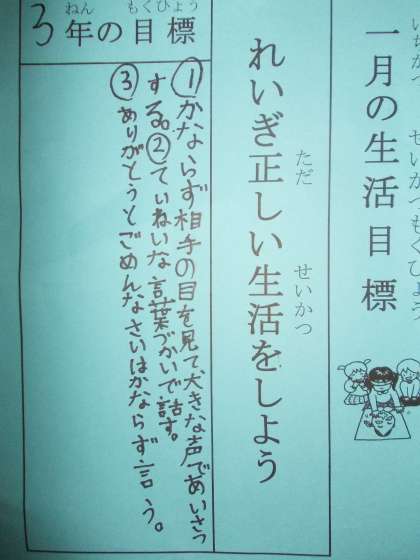 一月の生活目標
いちがつ せいかつもくひょう
れいぎ正しい生活をしよう
ただ せいかつ
3年の目標
ねん もくひょう
①かならず相手の目を見て、大きな声であいさつ
する。②ていねいな言葉づかいで話す。
③ありがとうとごめんなさいはかならず言う。